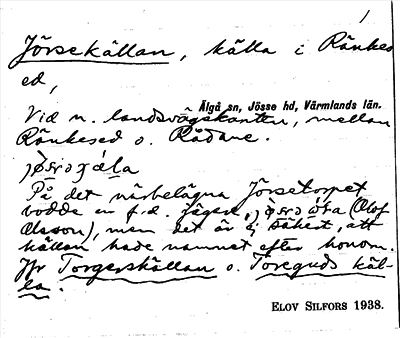 1
Jörsekällan, källa i Ränkes
ed,
Älgå sn, Jösse hd, Värmlands län.
Vid n. landsvägskanten, mellan
Ränkesed o. Rådane.
På det närbelägna Jörsetorpet
bodde en f.d. jägare, (Olof
Olsson), men det är ej säkert, att
källan hade namnet efter honom.
Jfr Torgerskällan o. Toreguds käl-
la.
ELOV SILFORS 1938.